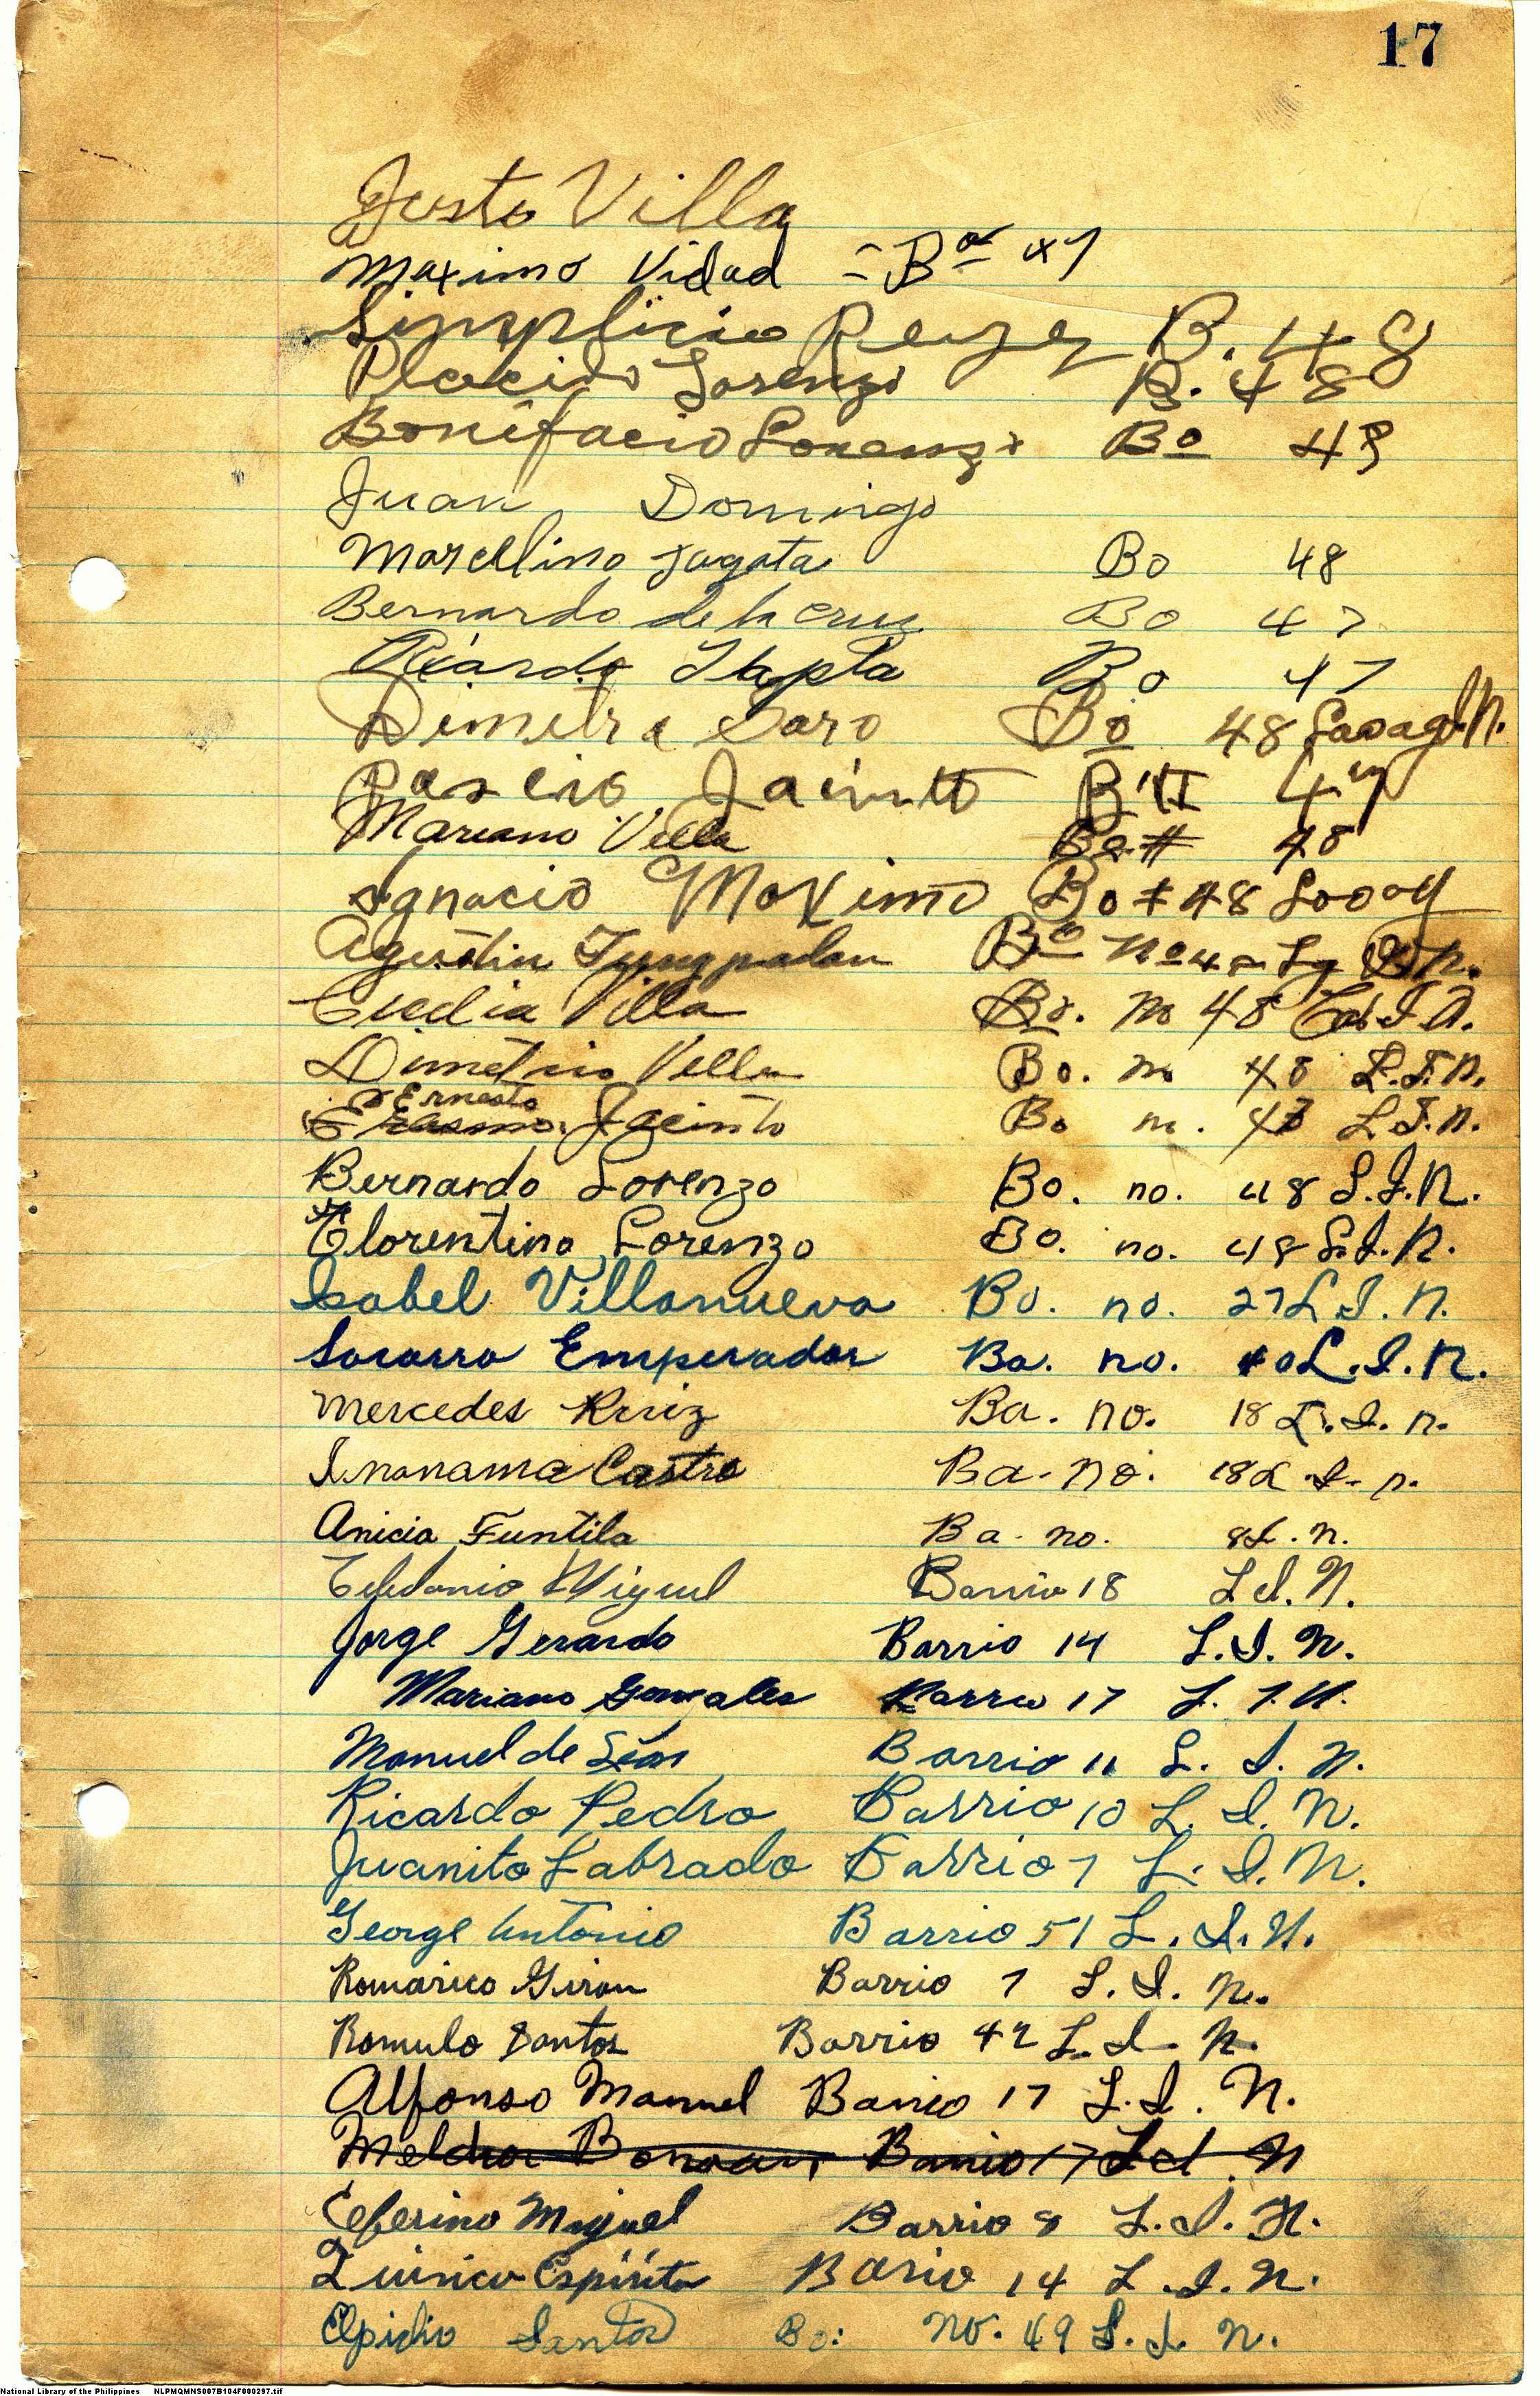 17
Justo Villa
Maximo Vidad - Bo 47
Simplicio Reyes B. 48
Placido Lorenzo B. 48
Bonifacio Lorenzo Bo 48
Juan Domingo
Marcelino Bo 48
Bernardo de la Cruz Bo 47
Ricardo Bo 47
Bo 48 Laoag I.N.
Jacinto 47
Mariano Villa Bo # 48
Ignacio Maximo Bo # 48 Laoag
Agustin Tungpalan Bo No
Villa Bo. No 48
Demetrio Villa Bo. No 48 L.I.N.
Ernesto
Jacinto Bo no. 47 L.I.N.
Bernardo Lorenzo Bo. no. 48 L.I.N.
Florentino Lorenzo Bo. no. 48 L.I.N.
Isabel Villanueva Bo. no. 27 L.I.N.
Socorro Emperador Ba. no. 40 L.I.N.
Mercedes Ruiz Ba. no. 18 L.I.n.
Castro Ba. no. 18 L.I.n.
Anicia Funtila Ba. no. 8 L.n.
Miguel Barrio 18 L.I.N.
Jorge Gerardo Barrio 14 L.I.N.
Mariano Gonzales Barrio 17 L.I.N.
Manuel de Leon Barrio 11 L.I.N.
Ricardo Pedro Barrio 10 L.I.N.
Juanito Labrado Barrio 7 L.I.N.
George Antonio Barrio 51 L.I.N.
Romarico Giron Barrio 7 L.I.N.
Romulo Santos Barrio 42 L.I.N.
Alfonso Manuel Barrio 17 L.I.N.
Melchor Barrio 17 L I.N
Ceferino Miguel Barrio 8 L.I.N.
Quirico Espiritu Bario 14 L.I.N.
Elpidio Santos Bo: No. 49 L.I.N.
National Library of the Philippines NLPMQMNS007B104F000297.tif